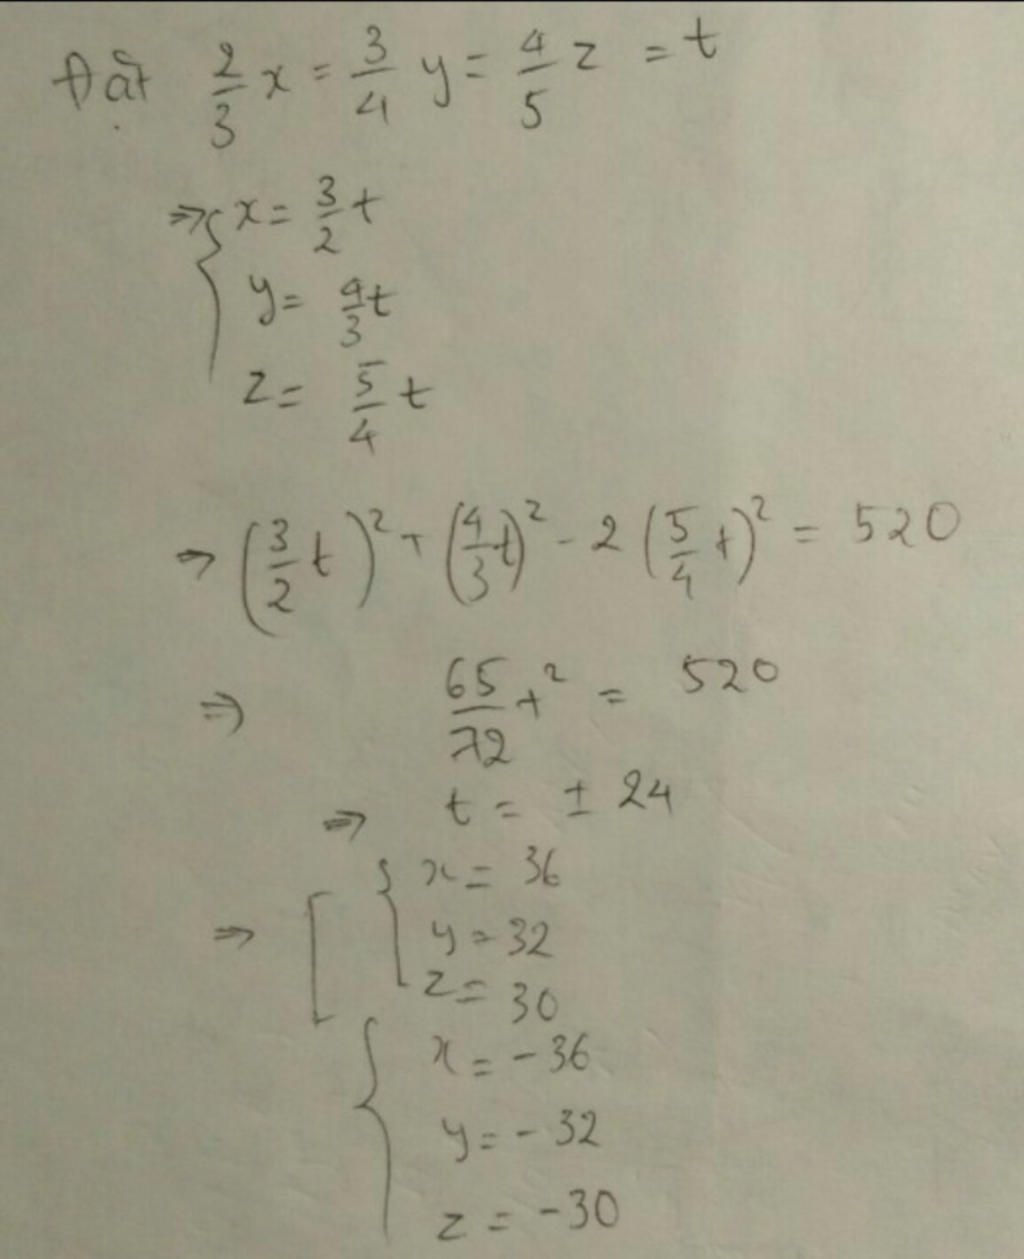 Đặt 2/3 x = 3/4 y = 4/5 z = t
⇒ { x = 3/2 t
y = 4/3 t
z = 5/4 t
⇒ (3/2 t)² + (4/3 t)² - 2 (5/4 t)² = 520
⇒ 65/72 t² = 520
⇒ t = ± 24
⇒ [ { x = 36
y = 32
z = 30
{ x = - 36
y = - 32
z = - 30